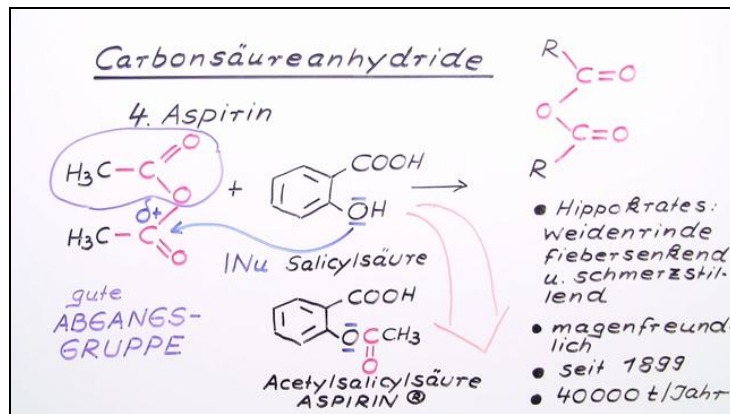 Carbonsäureanhydride
4. Aspirin
H₃C-C=O
O
δ+
H₃C-C=O
+
COOH
OH
→
INu Salicylsäure
gute
ABGANGS-
GRUPPE
COOH
O C CH₃
O
Acetylsalicylsäure
ASPIRIN ®
R
C=O
O
C=O
R
• Hippokrates:
weidenrinde
fiebersenkend
u. schmerzstil-
lend
• magenfreund-
lich
• seit 1899
• 40000 t/Jahr